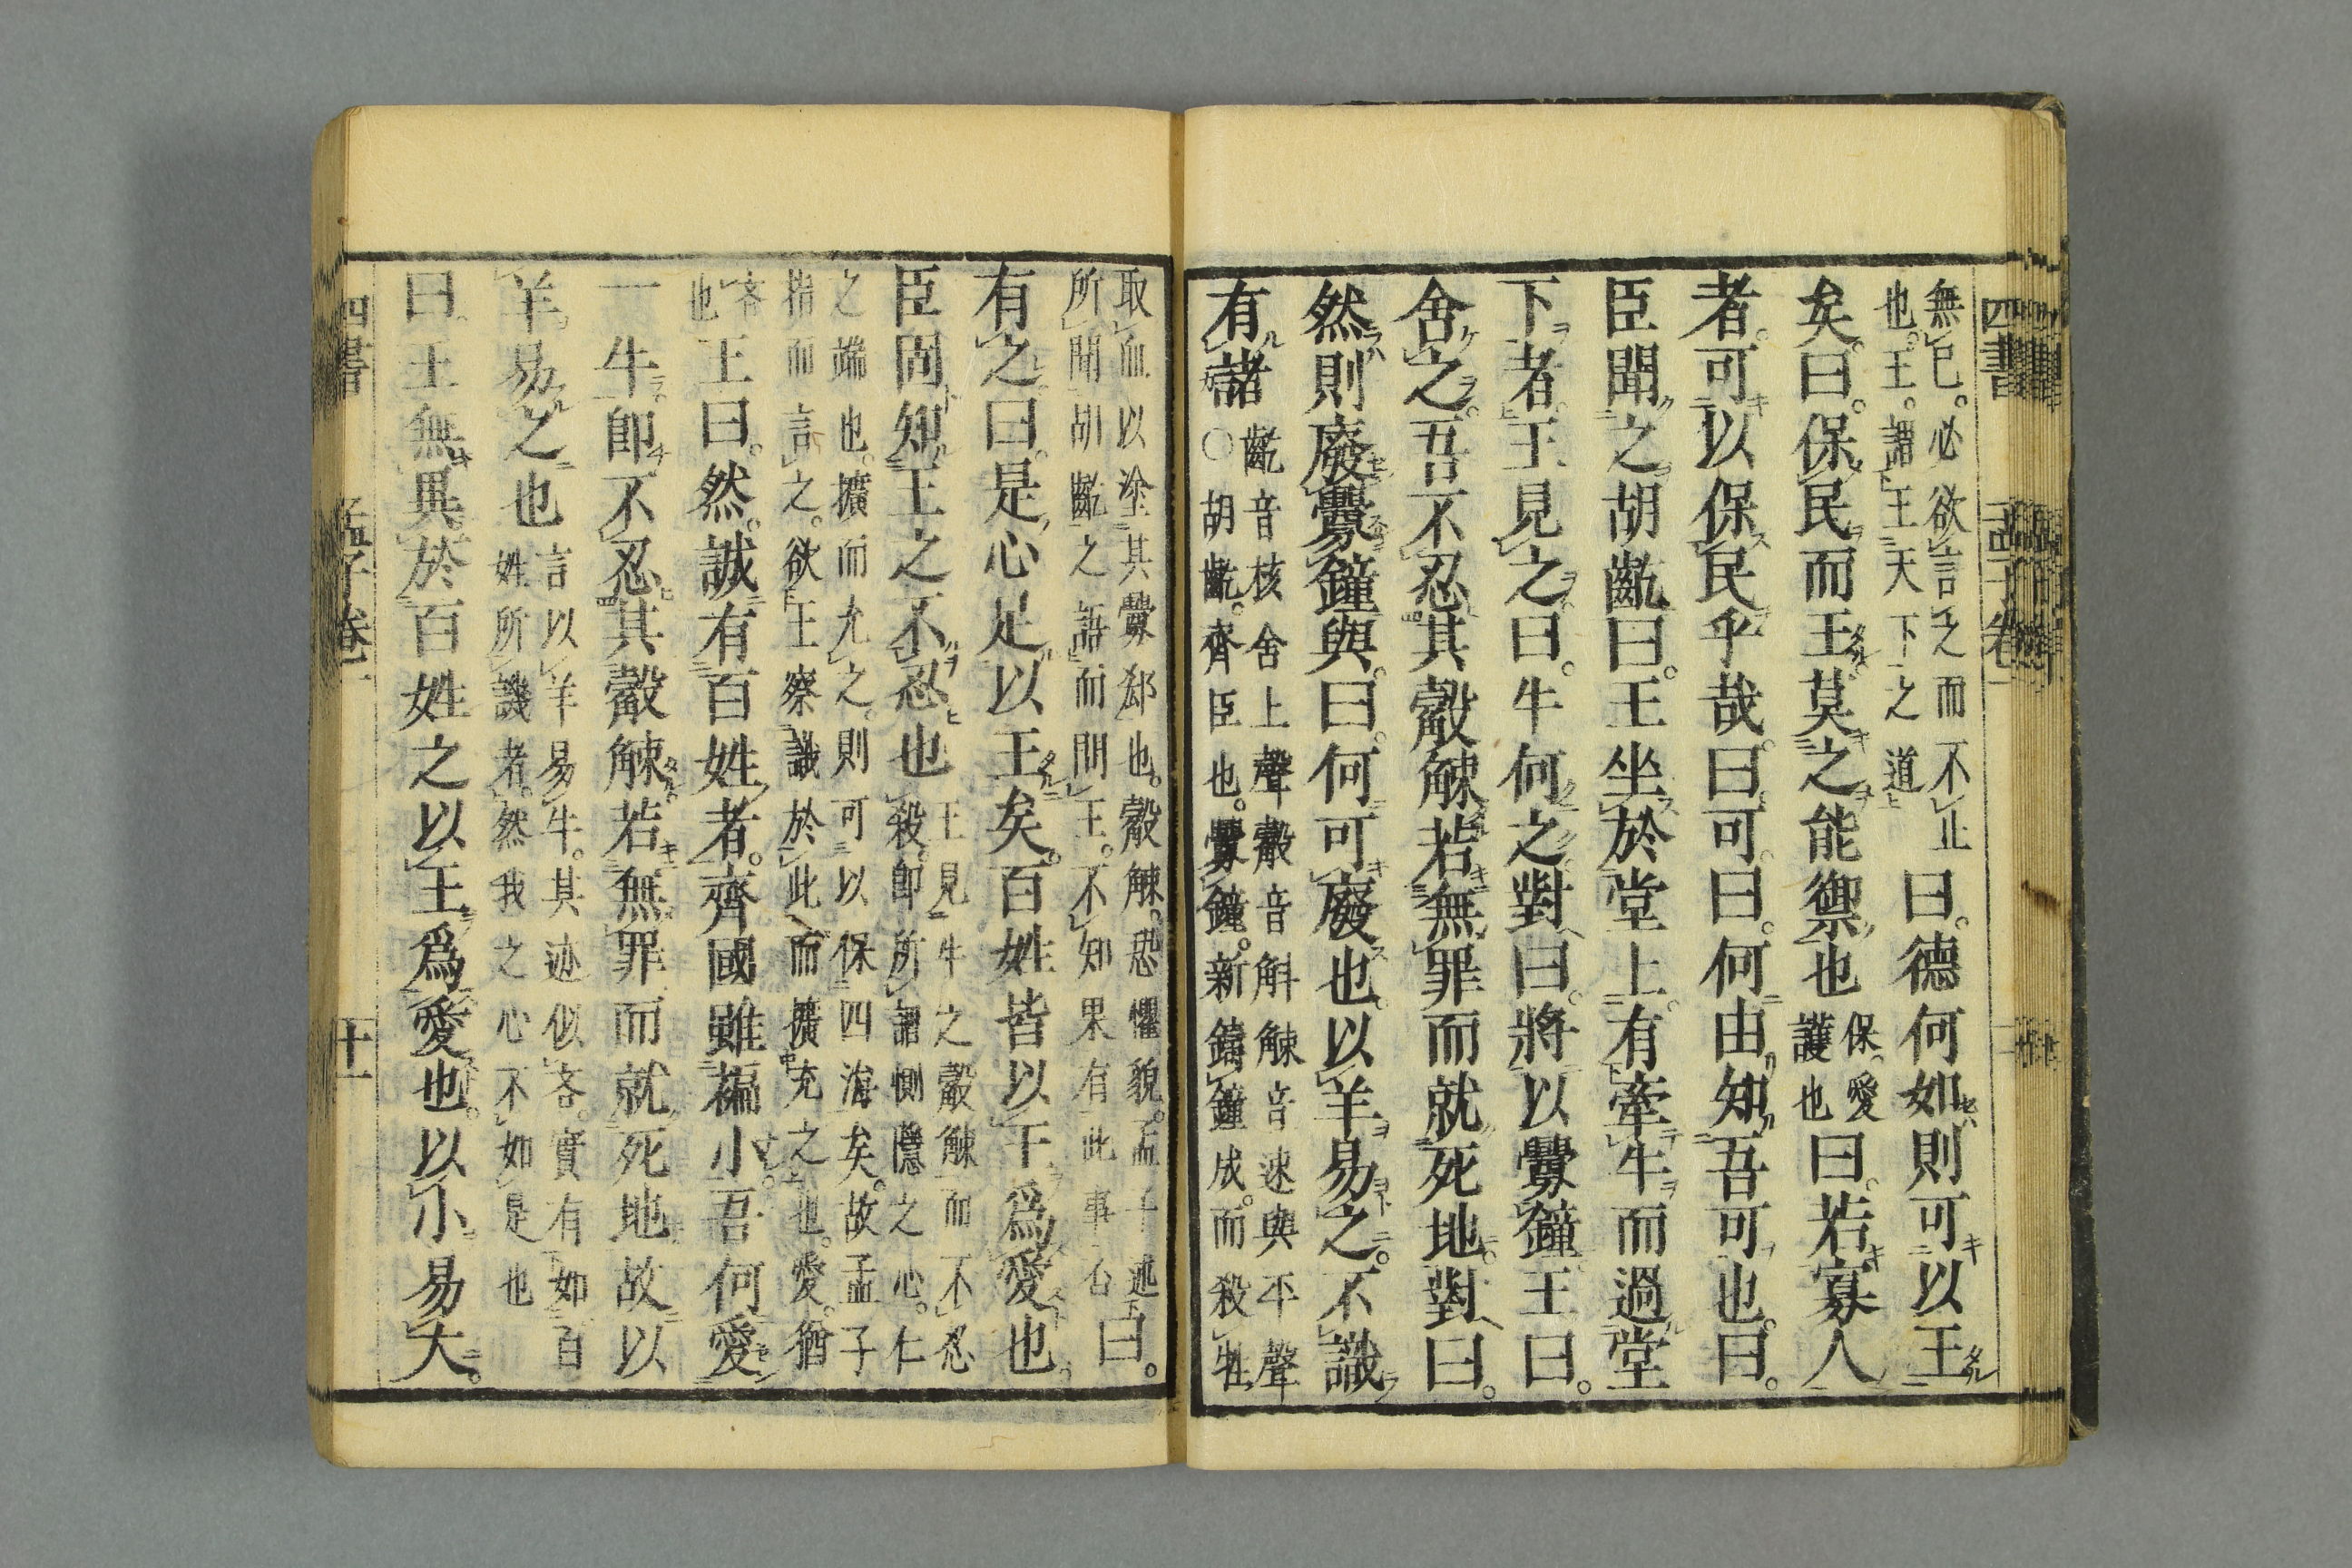 四書
孟子卷一
無已。必欲言之而不止
也。王。謂王天下之道
曰。德何如則可以王
矣。曰。保民而王莫之能禦也
保。愛
護也
曰。若寡人
者。可以保民乎哉。曰。可。曰。何由知吾可也。曰。
臣聞之胡齕曰。王坐於堂上。有牽牛而過堂
下者。王見之曰。牛何之對曰。將以釁鐘王曰。
舍之。吾不忍其觳觫若無罪而就死地。對曰。
然則廢釁鐘與。曰。何可廢也。以羊易之。不識
有諸
齕音核舍上聲觳音斛觫音速與平聲
○胡齕。齊臣也。釁鐘。新鑄鐘成。而殺牲
取血以塗其釁郤也。觳觫。恐懼貌。孟子述
所聞胡齕之語而問王。不知果有此事否
曰。
有之曰。是心足以王矣。百姓皆以王爲愛也。
臣固知王之不忍也
王見牛之觳觫而不忍
殺。卽所謂惻隱之心。仁
之端也。擴而充之。則可以保四海矣。故孟子
指而言之。欲王察識於此而擴充之也。愛。猶
吝
也
王曰。然。誠有百姓者。齊國雖褊小。吾何愛
一牛。卽不忍其觳觫。若無罪而就死地故以
羊。易之也
言以羊易牛。其迹似吝。實有如百
姓所譏者。然我之心不如是也
曰。王無異於百姓之以王爲愛也。以小。易大。
四書
孟子卷一
十一